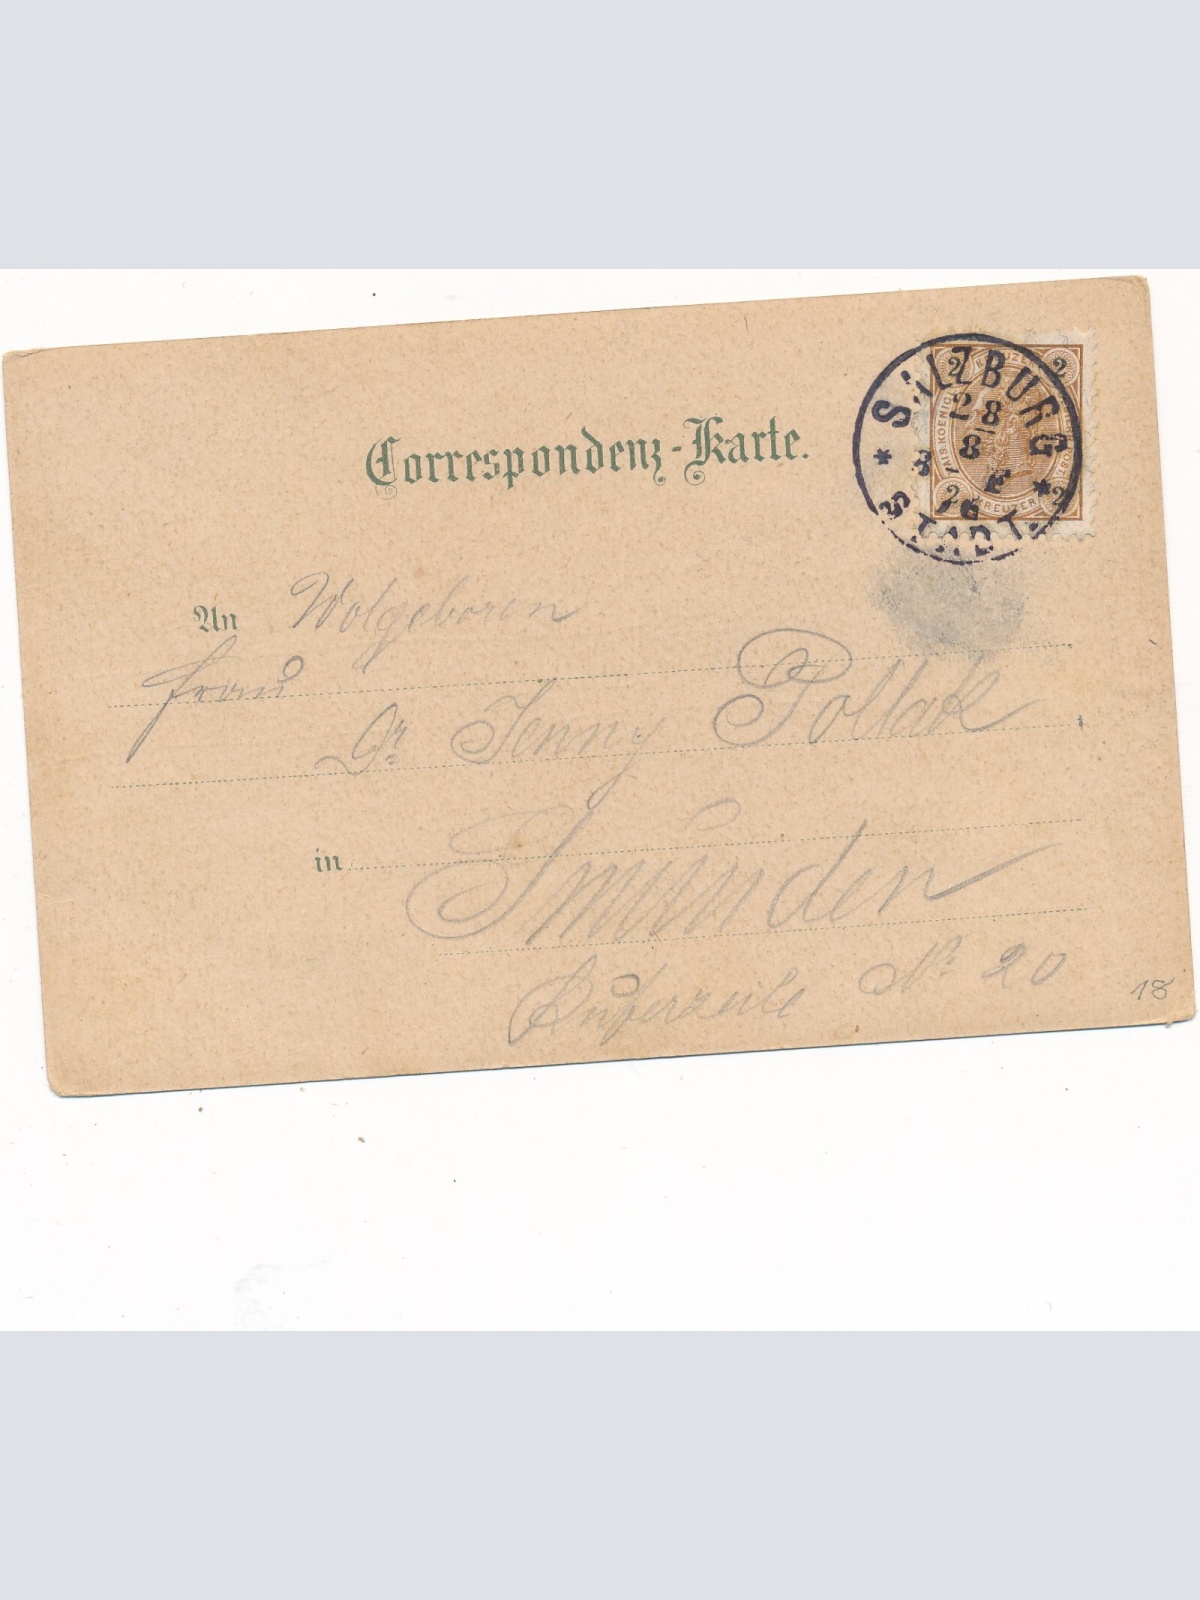 Correspondenz-Karte.
SALZBURG
2 8
8
96
STADT.
2 KREUZER 2
KAIS. KOENIGL.
POST.
2 KREUZER 2
An Wolgeboren
Frau
Dr Jenny Pollak
in Gmunden
Kuferzeile No 20
18